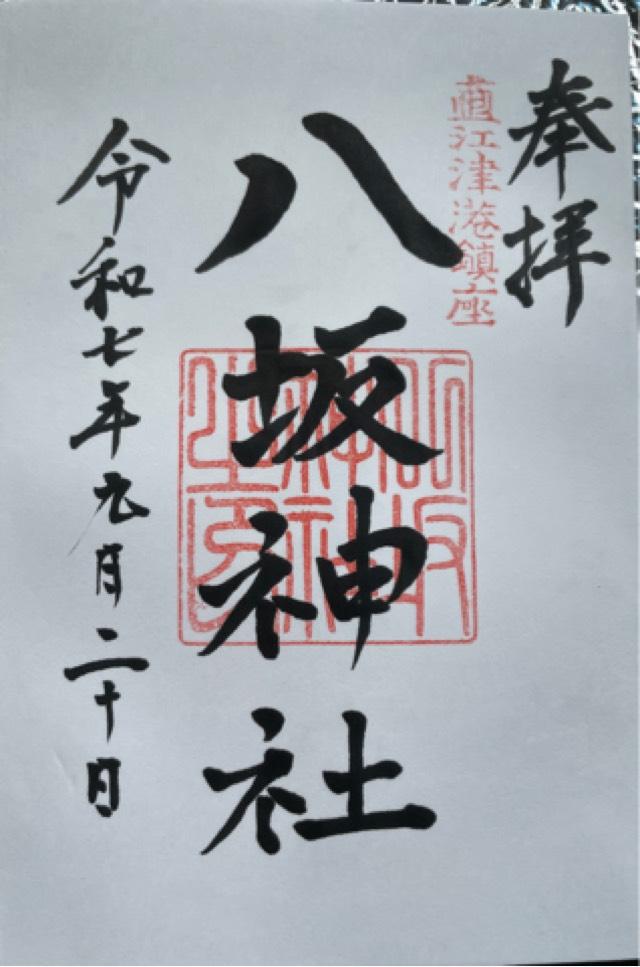 奉拝
直江津港鎮座
八坂神社
八坂神社之印
令和七年九月二十日